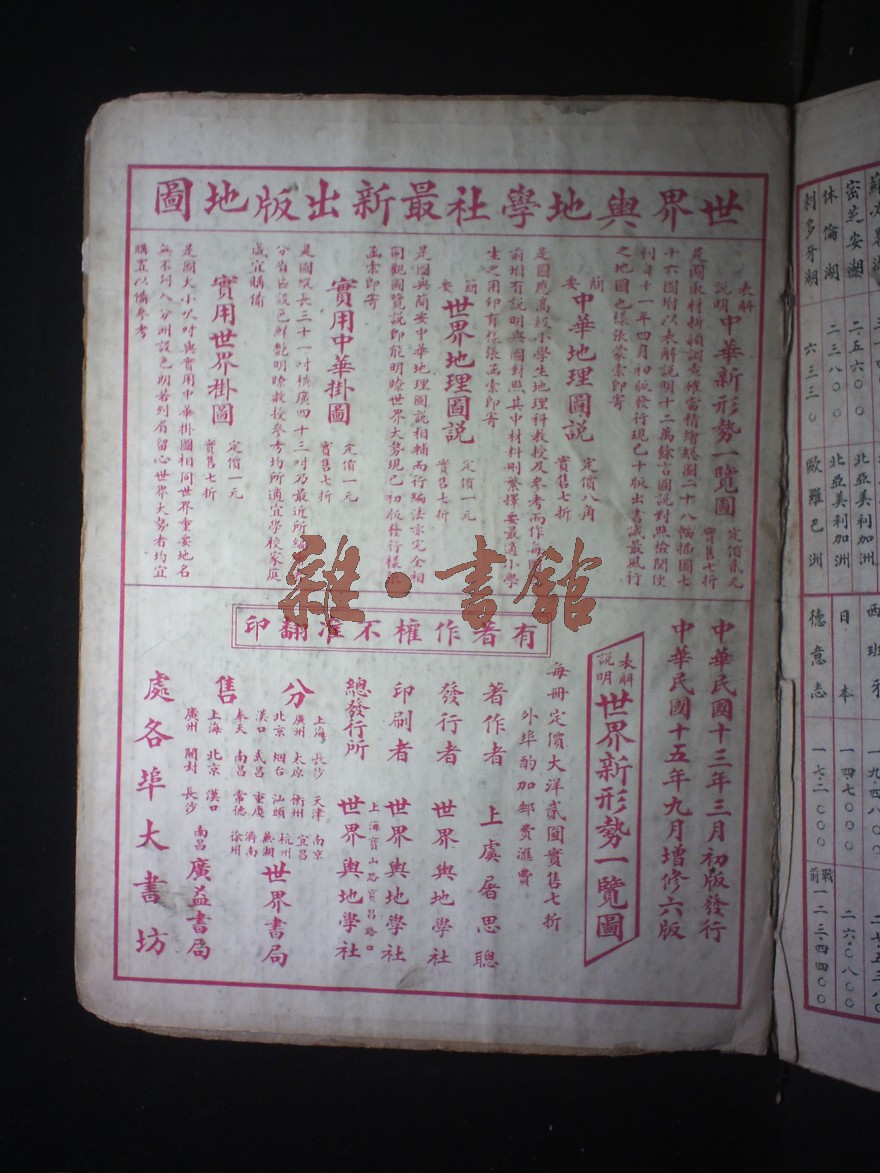 世界輿地學社最新出版地圖
表解說明中華新形勢一覽圖 定價貳元 實售七折
是圖取材折頭調查確當精繪總圖二十八幅插圖七
十六圖附以表解說明十二萬餘言圖說對照檢閱便
利自十一年四月初版發行現已十版出書誠最風行
之地圖也樣張蒙索即寄
簡要中華地理圖說 定價八角 實售七折
是圖應高級小學生地理科教授及參考而作每圖
前附有說明與圖對照其中材料刪繁擇要最適小學
生之用印有樣張函索即寄
簡要世界地理圖說 定價一元 實售七折
是圖與簡要中華地理圖說相輔而行編法亦完全相
同觀圖覽說即能明瞭世界大勢現已初版發行樣張
函索即寄
實用中華掛圖 定價一元 實售七折
是圖縱長三十一吋橫廣四十三吋乃最近所
分省區設色鮮艷明瞭教授參考均所適宜學校家庭
咸宜購備
實用世界掛圖 定價一元 實售七折
是圖大小尺吋與實用中華掛圖相同世界重要地名
無不列入分洲設色朗若列眉留心世界大勢者均宜
購置以備參考
有著作權不准翻印
中華民國十三年三月初版發行
中華民國十五年九月增修六版
表解說明世界新形勢一覽圖
每冊定價大洋貳圓實售七折
外埠的加郵費滙費
著作者 上虞屠思聰
發行者 世界輿地學社
印刷者 世界輿地學社
上海寶山路寶昌路口
總發行所 世界輿地學社
分售處
上海 長沙 天津 南京
廣州 太原 衡州 宜昌
北京 烟台 汕頭 杭州
漢口 武昌 重慶 蕪湖
奉天 南昌 常德 濟南 徐州
世界書局
上海 北京 漢口
廣州 開封 長沙 南昌
廣益書局
各埠大書坊
雜·書館
密芝安湖 二二·五六〇〇 北亞美利加洲
休倫湖 二三·八〇〇 北亞美利加洲
剌多牙湖 六三三〇 歐羅巴洲
西班牙 一九·四八〇〇
日本 一四七〇〇〇 二六·〇八〇〇
德意志 一七二〇〇〇 戰前一二三·四四〇〇